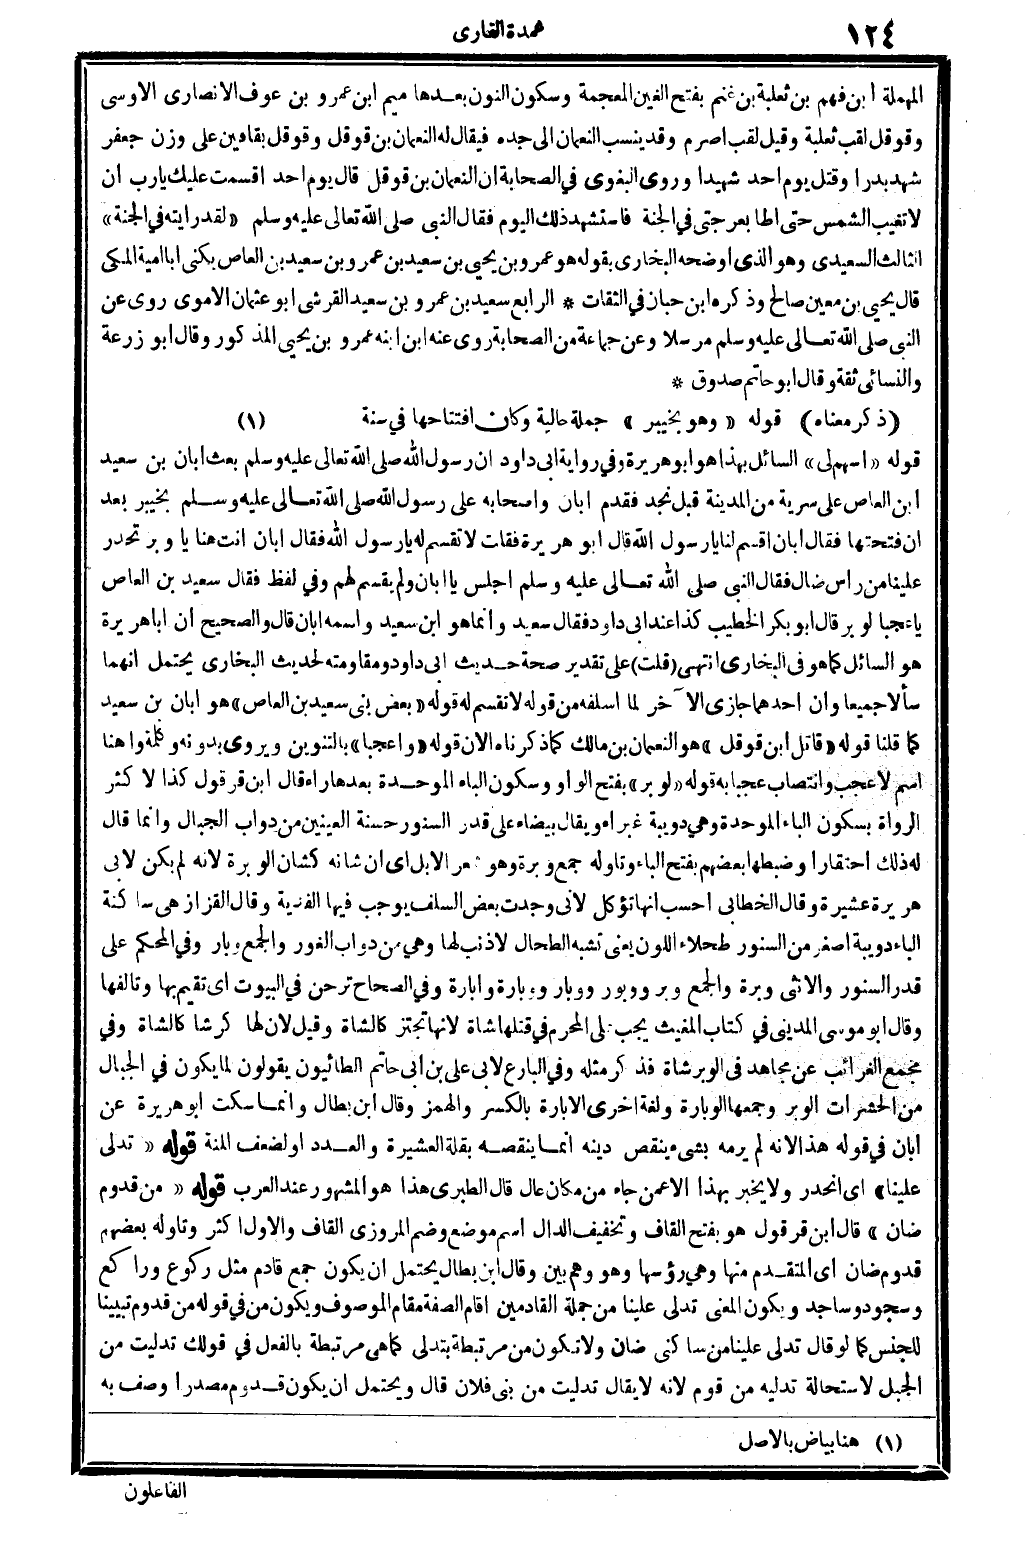 ١٢٤
عمدة القارى
المهملة ابن فهم بن ثعلبة بن غنم بفتح الغين المعجمة وسكون النون بعدها ميم ابن عمرو بن عوف الانصارى الاوسى
وقوقل لقب ثعلبة وقيل لقب اصرم وقد ينسب النعمان الى جده فيقال له النعمان بن قوقل وقوقل بقافين على وزن جعفر
شهد بدرا وقتل يوم احد شهيدا وروى البغوى في الصحابة ان النعمان بن قوقل قال يوم احد اقسمت عليك يارب ان
لا تغيب الشمس حتى اطا بعرجتى في الجنة فاستشهد ذلك اليوم فقال النبى صلى الله تعالى عليه وسلم «لقد رايته في الجنة»
الثالث السعيدى وهو الذى اوضحه البخارى بقوله هو عمرو بن يحيى بن سعيد بن عمرو بن سعيد بن العاص يكنى ابا امية المكى
قال يحيى بن معين صالح وذكره ابن حبان في الثقات * الرابع سعيد بن عمرو بن سعيد القرشى ابو عثمان الاموى روى عن
النبى صلى الله تعالى عليه وسلم مرسلا وعن جماعة من الصحابة روى عنه ابن ابنه عمرو بن يحيى المذكور وقال ابو زرعة
والنسائى ثقة وقال ابو حاتم صدوق *
(ذكر معناه) قوله «وهو بخيبر» جملة حالية وكان افتتاحها في سنة (١)
قوله «اسهم لى» السائل بهذا هو ابو هريرة وفي رواية ابى داود ان رسول الله صلى الله تعالى عليه وسلم بعث ابان بن سعيد
ابن العاص على سرية من المدينة قبل نجد فقدم ابان واصحابه على رسول الله صلى الله تعالى عليه وسلم بخيبر بعد
ان فتحتها فقال ابان اقسم لنا يا رسول الله قال ابو هريرة فقلت لا تقسم له يا رسول الله فقال ابان انت هنا يا وبر تحدر
علينا من راس ضال فقال النبى صلى الله تعالى عليه وسلم اجلس يا ابان ولم يقسم لهم وفي لفظ فقال سعيد بن العاص
يا عجبا لو بر قال ابو بكر الخطيب كذا عند ابى داود فقال سعيد وانما هو ابن سعيد واسمه ابان قال والصحيح ان ابا هريرة
هو السائل كما هو في البخارى انتهى (قلت) على تقدير صحة حديث ابى داود ومقاومته لحديث البخارى يحتمل انهما
سألا جميعا وان احدهما جازى الآخر لما اسلفه من قوله لا تقسم له قوله «بعض بنى سعيد بن العاص» هو ابان بن سعيد
كما قلنا قوله «قاتل ابن قوقل» هو النعمان بن مالك كما ذكرناه الان قوله «واعجبا» بالتنوين ويروى بدونه وكلمة وا هنا
اسم لاعجب وانتصاب عجبا به قوله «لوبر» بفتح الواو وسكون الباء الموحدة بعدها راء قال ابن قرقول كذا لاكثر
الرواة بسكون الباء الموحدة وهي دويبة غبراء ويقال بيضاء على قدر السنور حسنة العينين من دواب الجبال وانما قال
له ذلك احتقارا وضبطها بعضهم بفتح الباء وتاوله جمع وبرة وهو شعر الابل اى ان شانه كشان الوبرة لانه لم يكن لابى
هريرة عشيرة وقال الخطابى احسب انها تؤكل لانى وجدت بعض السلف يوجب فيها الفدية وقال القزاز هى ساكنة
الباء دويبة اصغر من السنور طحلاء اللون يعنى تشبه الطحال لا ذنب لها وهي من دواب الغور والجمع وبار وفي المحكم على
قدر السنور والانثى وبرة والجمع وبر ووبور ووبار ووبارة وابارة وفي الصحاح ترحن في البيوت اى تقيم بها وتالفها
وقال ابو موسى المدينى في كتاب المغيث يجب على المحرم في قتلها شاة لانها تجتز كالشاة وقيل لان لها كرشا كالشاة وفي
مجمع الغرائب عن مجاهد في الوبر شاة فذكر مثله وفي البارع لابى على بن ابى حاتم الطائيون يقولون لما يكون في الجبال
من الحشرات الوبر وجمعها الوبارة ولغة اخرى الابارة بالكسر والهمز وقال ابن بطال وانما سكت ابو هريرة عن
ابان في قوله هذا لانه لم يرمه بشىء ينقص دينه انما ينقصه بقلة العشيرة والعدد او لضعف المنة قوله «تدلى
علينا» اى انحدر ولا يخبر بهذا الا عمن جاء من مكان عال قال الطبرى هذا هو المشهور عند العرب قوله «من قدوم
ضان» قال ابن قرقول هو بفتح القاف وتخفيف الدال اسم موضع وضم المروزى القاف والاول اكثر وتاوله بعضهم
قدوم ضان اى المتقدم منها وهي رؤسها وهو وهم بين وقال ابن بطال يحتمل ان يكون جمع قادم مثل ركوع وراكع
وسجود وساجد ويكون المعنى تدلى علينا من جملة القادمين اقام الصفة مقام الموصوف ويكون من في قوله من قدوم تبيينا
للجنس كما لو قال تدلى علينا من ساكنى ضان ولا تكون من مرتبطة بتدلى كما هى مرتبطة بالفعل في قولك تدليت من
الجبل لاستحالة تدليه من قوم لانه لا يقال تدليت من بنى فلان قال ويحتمل ان يكون قدوم مصدرا وصف به
(١) هنا بياض بالاصل
الفاعلون